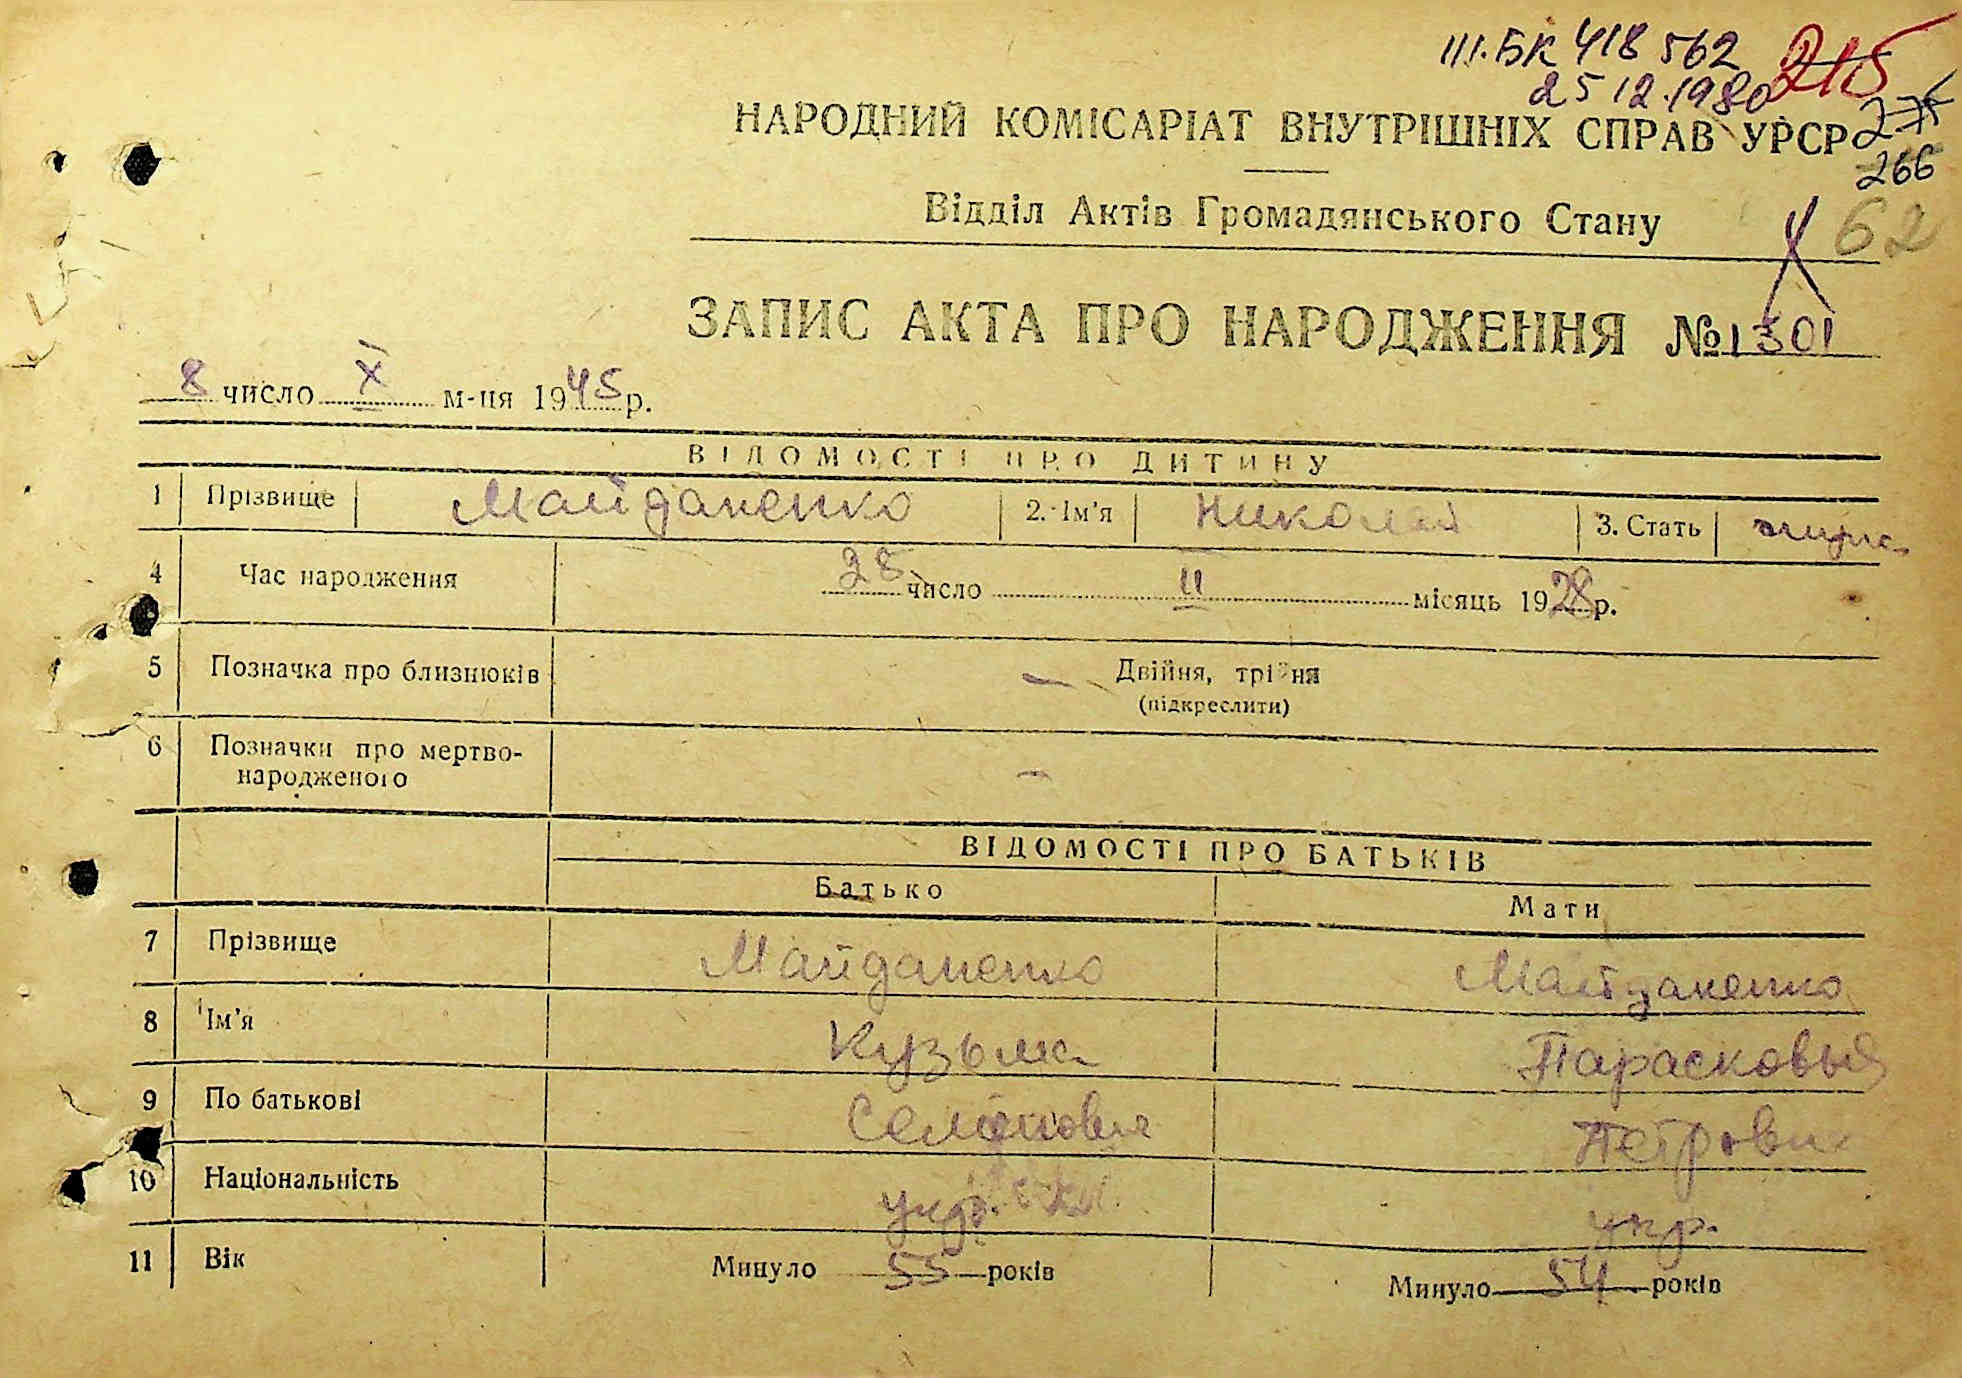 III.БК 418 562
25 12.1980
215
275
НАРОДНИЙ КОМІСАРІАТ ВНУТРІШНІХ СПРАВ УРСР
266
Відділ Актів Громадянського Стану
62
ЗАПИС АКТА ПРО НАРОДЖЕННЯ № 1301
8 число X м-ця 1945 р.
ВІДОМОСТІ ПРО ДИТИНУ
1 Прізвище Майданенко 2. Ім'я Николай 3. Стать
4 Час народження 28 число II місяць 1928 р.
5 Позначка про близнюків — Двійня, трійня
(підкреслити)
6 Позначки про мертво-
народженого —
ВІДОМОСТІ ПРО БАТЬКІВ
Батько Мати
7 Прізвище Майданенко Майданенко
8 Ім'я Кузьма Парасковья
9 По батькові Семенович Петровн
10 Національність укр. укр.
11 Вік Минуло 55 років Минуло 54 років